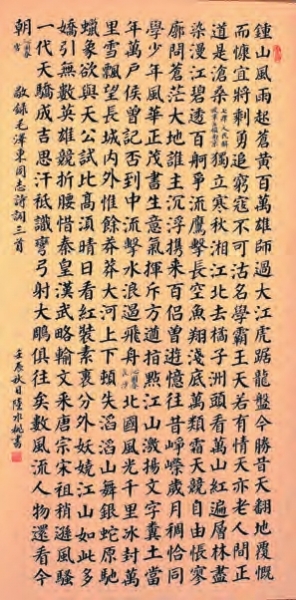 鍾山風雨起蒼黃百萬雄師過大江虎踞龍盤今勝昔天翻地覆慨
而慷宜將剩勇追窮寇不可沽名學霸王天若有情天亦老人間正
道是滄桑 獨立寒秋湘江北去橘子洲頭看萬山紅遍層林盡
染漫江碧透百舸爭流鷹擊長空魚翔淺底萬類霜天競自由悵寥
廓問蒼茫大地誰主沉浮攜來百侶曾遊憶往昔崢嶸歲月稠恰同
學少年風華正茂書生意氣揮斥方遒指點江山激揚文字糞土當
年萬戶侯曾記否到中流擊水浪遏飛舟 北國風光千里冰封萬
里雪飄望長城內外惟餘莽莽大河上下頓失滔滔山舞銀蛇原馳
蠟象欲與天公試比高須晴日看紅裝素裹分外妖嬈江山如此多
嬌引無數英雄競折腰惜秦皇漢武略輸文采唐宗宋祖稍遜風騷
一代天驕成吉思汗祇識彎弓射大鵰俱往矣數風流人物還看今
朝 沁園春雪 敬錄毛澤東同志詩詞三首
壬辰秋日陸水桃書